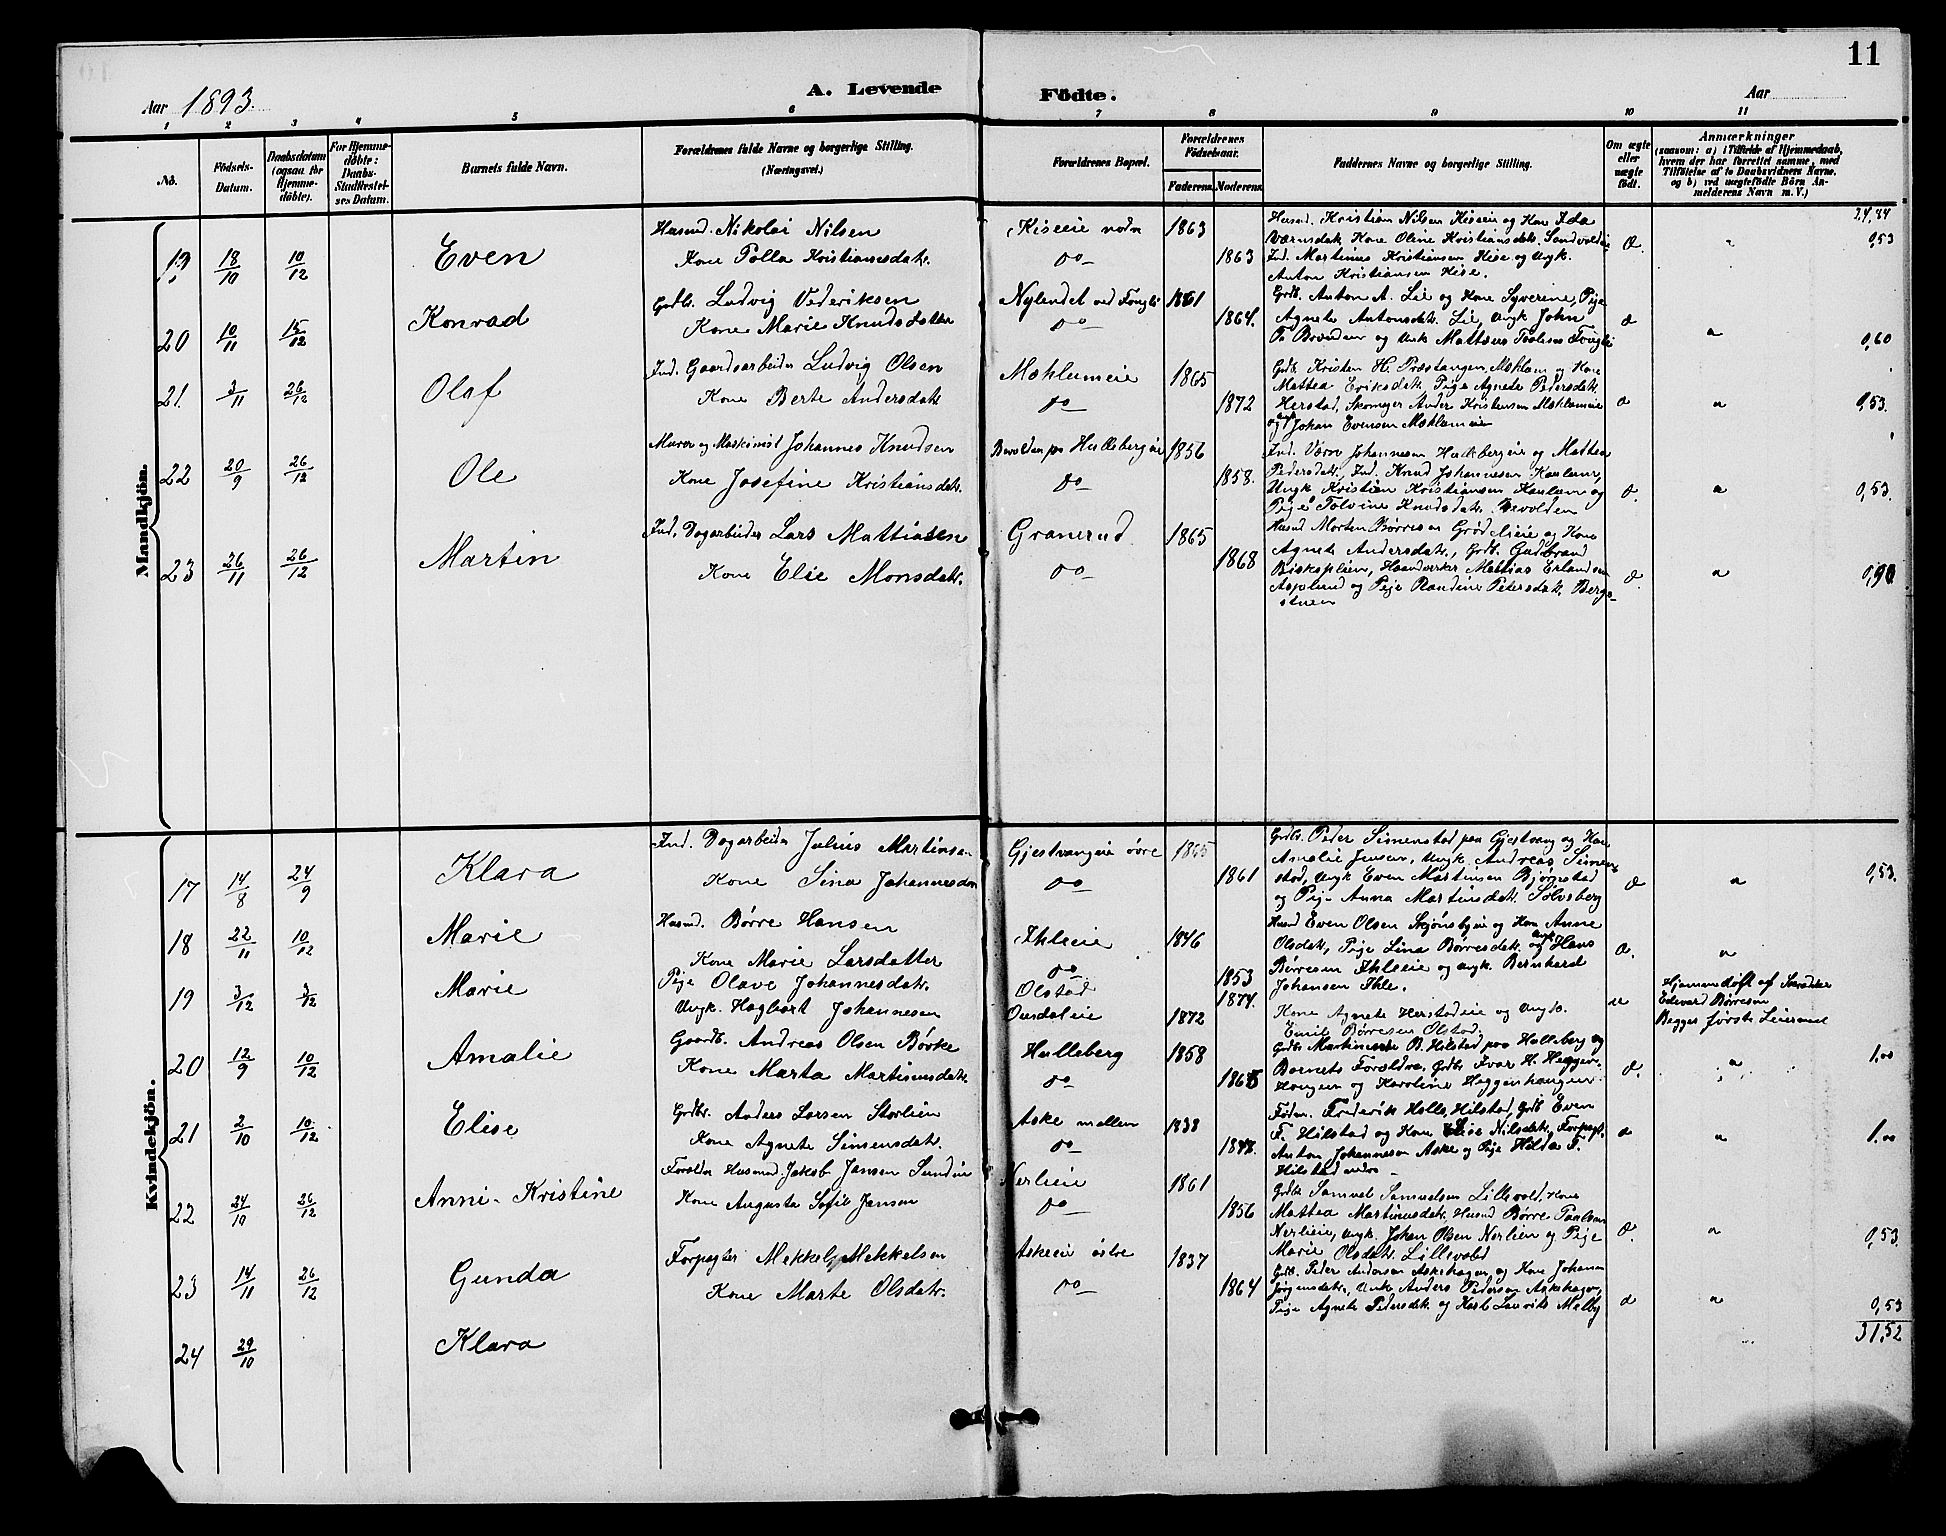 11
Aar 1893.
A. Levende Födte.
Aar
1 2 3 4 5 6 7 8 9 10 11
No.
Födsels-Datum.
Daabsdatum (ogsaa for Hjemmedöbte).
For Hjemmedöbte: Daabs-Stadfæstelses Datum.
Barnets fulde Navn.
Forældrenes fulde Navne og borgerlige Stilling.
(Næringsvei.)
Forældrenes Bopæl.
Forældrenes Födselsaar.
Faderens. Moderens.
Faddernes Navne og borgerlige Stilling.
Om ægte eller uægte födt.
Anmærkninger
(saasom: a) i Tilfælde af Hjemmedaab, hvem der har forrettet samme, med Tilföielse af to Daabsvidners Navne, og b) ved uægtefödte Börn Anmelderens Navn m. V.)
Mandkjön.
24,84
19 18/10 10/12 Even
Husmd. Nikolai Nilsen
Kone Polla Kristiansdatr.
Kiseeie nodre
do
1863 1863
Husmd. Kristian Nilsen Kiseeie og Kone Ida
Kone Oline Kristiansdatr.
Ind. Martinus Kristiansen Kise og Ungk.
Anton Kristiansen Kise.
0,53
20 10/11 15/12 Konrad
Grdb. Ludvig
Kone Marie Knudsdatter
Nylendet ved
do
1861 1864.
Grdb. Anton A. Lie og Kone Syverine, Pige
Agnete Antonsdatr. Lie, Ungk John
0,60
21. 3/11 26/12 Olaf
Ind. Gaardsarbeider Ludvig Olsen
Kone Berte Andersdatr.
Mæhlumeie
do
1865 1872
Grdb. Kristen H. Præstangen, Mæhlum og Kone
Mattea Eriksdatr. Pige Agnete Pedersdatr.
Herstad, Skomager Ander Kristensen Mæhlumeie
og Johan Evensen Mæhlumeie
0,53.
22 20/9 26/12 Ole
Murer og Maskinist Johannes Knudsen
Kone Josefine Kristiansdatr.
paa Hullebergeie
do
1856 1858.
Ind. Johannesen Hullebergeie og Mattea
Pedersdatr., Ind. Knud Johannesen
Ungk Kristian Kristiansen
Pige Knudsdatr.
0,53.
23 26/11 26/12 Martin
Ind. Dagarbeider Lars Mattiasen
Kone Elie Monsdatr.
Granerud
do
1865 1868
Husmd Morten Børresen og Kone
Agnete Andersdatr., Grdb. Gudbrand
Haandverker Mattias Erlandsen
Asplund og Pige Randine Petersdatr. Bergestuen
0,90
Kvindekjön.
17 14/8 24/9 Klara
Ind. Dagarbeider Julius Martinsen
Kone Sina Johannesdatr
Gjestvangeie övre
do
1865 1861
Grdb. Peder Simenstad paa Gjestvang og Kone
Amalie Jensen, Ungk. Andreas Simenstad, Ungk Even Martinsen Bjørnstad
og Pige Anna Martinsdatr. Sølvsberg
0,53.
18 22/11 10/12 Marie
Husmd. Börre Hansen
Kone Marie Larsdatter
Ihleeie
do
1846 1853
Husmd Even Olsen og Kone Anne
Olsdatr, Pige Lina Børresdatr. og Ungk Hans
Børresen Ihleeie og Ungk. Bernhard
Johansen Ihle.
19 3/12 3/12 Marie
Pige Olave Johannesdatr.
Ungk. Hagbart Johannesen
Olstad
1874. 1872
Kone Agnete Herstadeie og Ungk.
Emil Børresen Olstad.
u
Hjemmedøbt af Skrædder
Edvard Børresen
Begges første Leiermaal
20 12/9 10/12 Amalie
Gaardb. Andreas Olsen Børke
Kone Marta Martinusdatr.
Hulleberg
do
1858 1865
Grdb Martinus B. Hilstad paa Hulleberg og
Barnets Forældre, Grdb. Ivar H. Heggenhaugen og Karoline Heggenhaugen.
1.00
21 2/10 10/12 Elise
Grdbr. Anders Larsen Storlien
Kone Agnete Simensdatr.
Aske mellem
do
1838
Fredrik Holls, Hilstad, Grdb Even
F. Hilstad og Kone Elise Nilsdatr., Forpagt.
Anton Johannesen Aske og Pige Hilda F.
Hilstad
1.00
22 24/10 26/12 Anni-Kristine
Forældre Husmd. Jakob Jansen
Kone Augusta Sofie Jansen
Nerlieie
do
1861 1856
Grdb. Samuel Samuelsen Lillevold, Kone
Mattea Martinusdatr. Husmd Børre Paulsen
Nerlieie, Ungk. Johan Olsen Nerlien og Pige
Marie Olsdatr. Lillevold
0,53.
23 14/11 26/12 Gunda
Forpagter Mekkel Mekkelsen
Kone Marte Olsdatr.
Askeeie östre
do
1837 1864
Grdb. Peder Andersen Askehagen og Kone Johanne
Jørgensdatr., Ungk. Anders Pedersen Askehagen,
Pige Agnete Pedersdatr og Melby
0,53
31,52
24 29/10 Klara